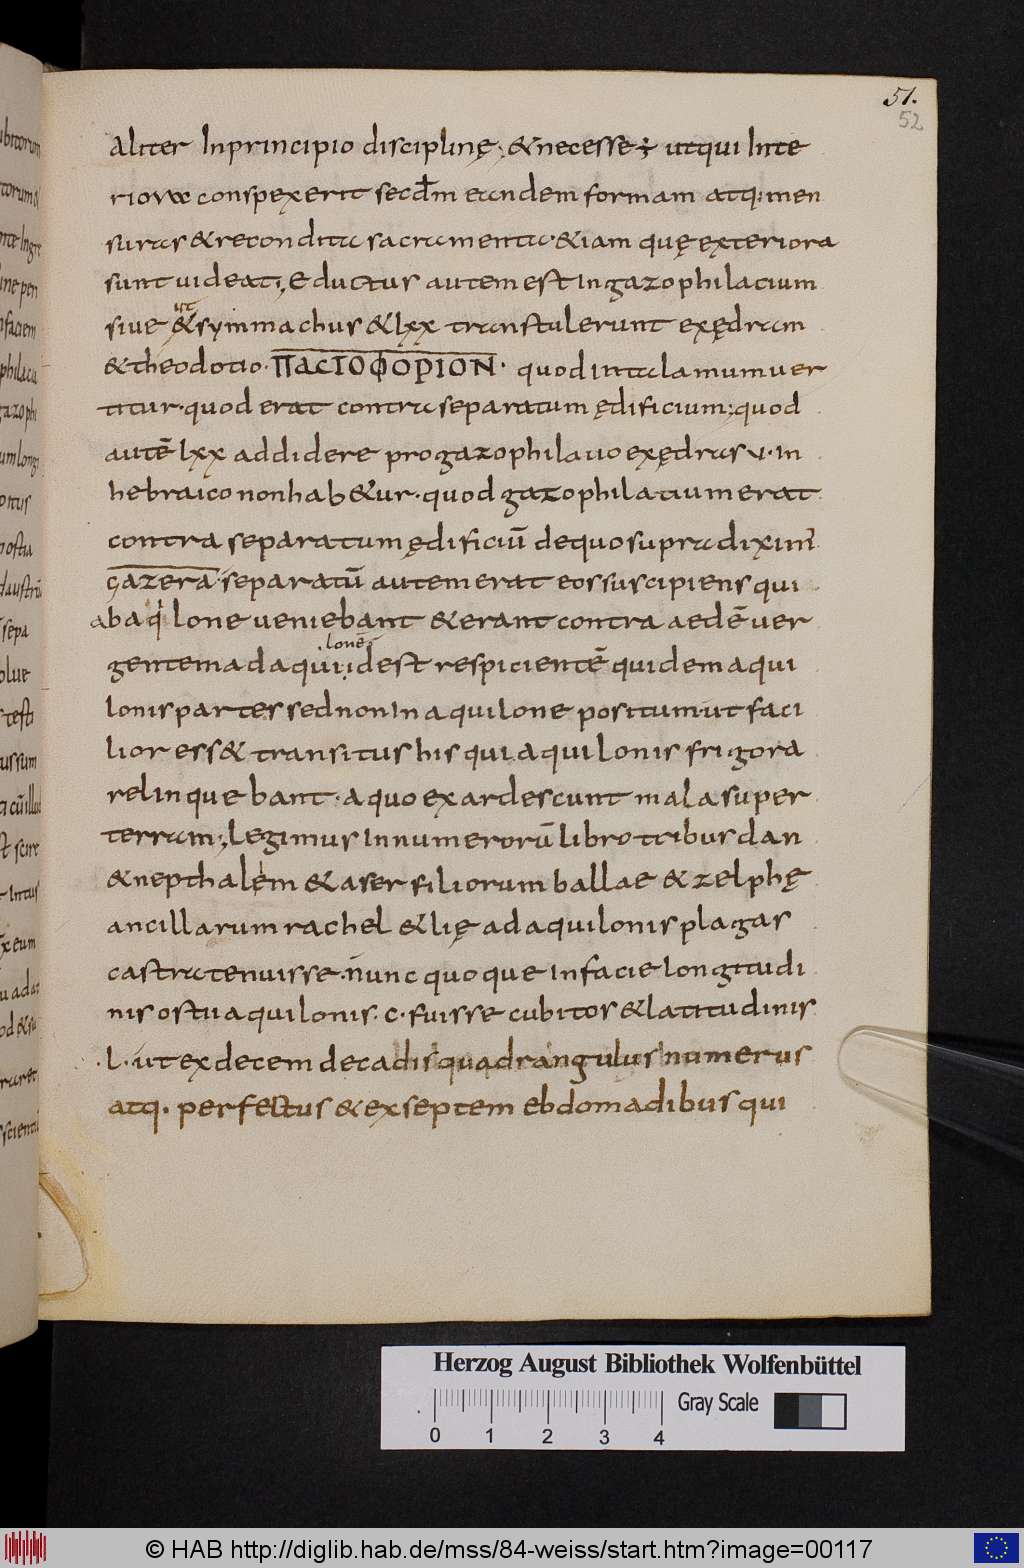 51.
52
aliter In principio disciplinę; & necesse ÷ ut qui Inte
riora conspexerit secdm eandem formam atq; men
suras & recondita sacramenta · & iam quę exteriora
sunt uideat; Eductus autem est In gazophilacium
siue ut & symmachus & lxx transtulerunt exędram
& theodotio · ΠΑCΤΟΦΟΡΙΟΝ · quod In talamum uer
titur · quod erat contra separatum ędificium; quod
autē lxx addidere pro gazophilatio exędras v · In
hebraico non hab&ur · quod gazophilatium erat
contra separatum ędificiū de quo supra dixim'
gazera · separatū autem erat eos suscipiens qui
ab aqilone ueniebant & erant contra aedē uer
gentem ad aqui lonē idest respicientē quidem aqui
lonis partes sed non In aquilone positum ut faci
lior ess& transitus his qui aquilonis frigora
relinquebant · a quo exardescunt mala super
terram; Legimus In numerorū libro tribus dan
& nepthalem & aser filiorum ballae & zelphę
ancillarum rachel & lię ad aquilonis plagas
castra tenuisse · nunc quoque In facie longitudi
nis ostii aquilonis · c · fuisse cubitos & latitudinis
· l · ut ex decem decadis quadrangulus numerus
atq · perfectus & ex septem ebdomadibus qui
Herzog August Bibliothek Wolfenbüttel
Gray Scale
0 1 2 3 4
© HAB http://diglib.hab.de/mss/84-weiss/start.htm?image=00117